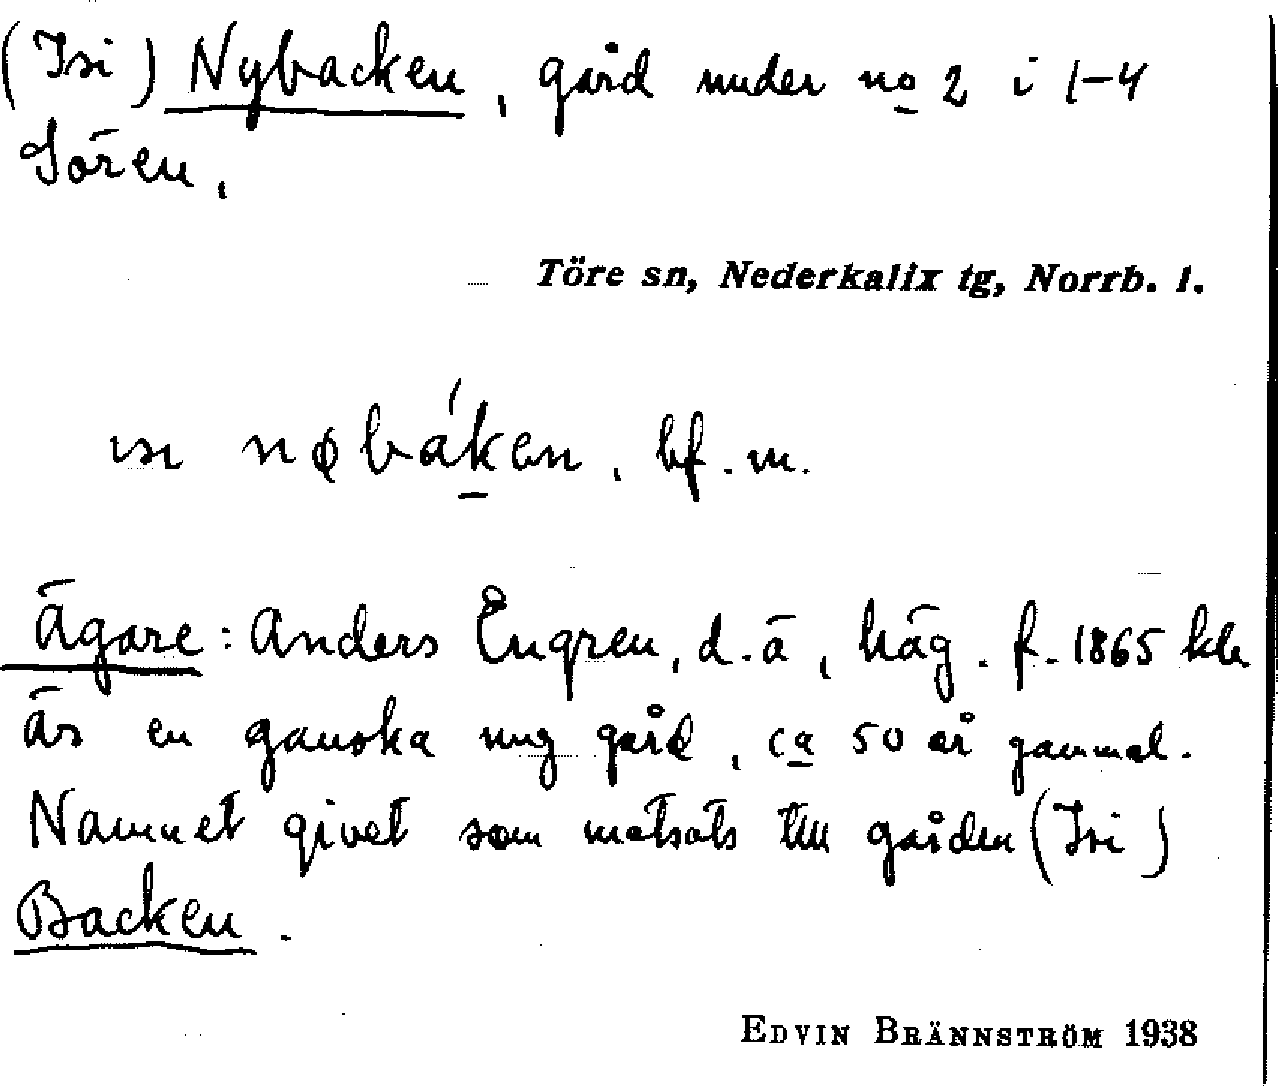 (Isi) Nybacken, gård under no 2 i 1-4
Sören.
Töre sn, Nederkalix tg, Norrb. l.
ısı nøbáken, bf. m.
Ägare: Anders Engren, d.ä, häg. f. 1865
är en ganska ung gård, ca 50 år gammal.
Namnet givet som motsats till gården (Isi)
Backen.
EDVIN BRÄNNSTRÖM 1938